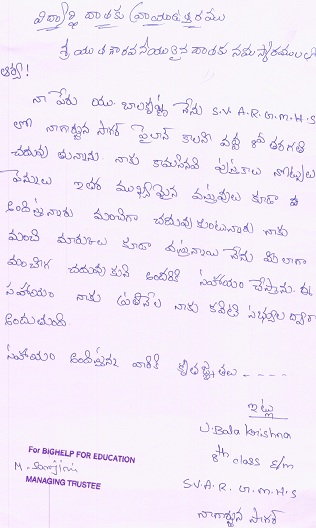 విద్యార్థి దాతకు వ్రాయు ఉత్తరము
శ్రీయుత గౌరవనీయులైన దాతకు నమస్కారములతో
ఆర్యా!
నా పేరు యు. బాలకృష్ణ నేను S.V.A.R.G.M.H.S
లో నాగార్జున సాగర్ పైలాన్ కాలని వద్ద 8వ తరగతి
చదువుతున్నాను. నాకు కావలసిన పుస్తకాలు నోట్సులు
పెన్నులు ఇతర ముఖ్యమైన వస్తువులు కూడా
అందిస్తున్నారు మంచిగా చదువుకుంటున్నాను నాకు
మంచి మార్కులు కూడా వస్తున్నాయి నేను ఇలాగా
మంచిగ చదువుకుని అందరికి సహాయం చేస్తాను. ఈ
సహాయం నాకు ప్రతినెల నాకు కమిటి సభ్యుల ద్వారా
అందుతుంది.
సహాయం అందిస్తున్న వారికి కృతజ్ఞతలు - - - -
ఇట్లు
U. Bala Krishna
8th class E/m
S.V.A.R. G.M.H.S
నాగార్జున సాగర్
For BIGHELP FOR EDUCATION
MANAGING TRUSTEE